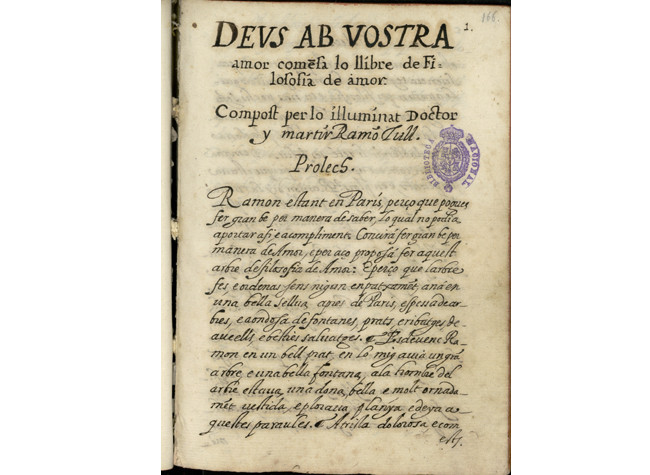 166.
1.
DEVS AB VOSTRA
amor comēsa lo llibre de Fi-
lososia de amor.
Compost per lo illuminat Doctor
y martir Ramō Lull.
Prolech.
Ramon estant en Paris, perço que pogues
fer gran be per manera de saber, lo qual no podia
aportar a fi e a compliment. Concira fer gran be per
manera de Amor, e per aço proposa fer aquest
arbre de filosofia de Amor: E perço que larbre
fes e ordenas sens nigun enpatxamēt, ana en
una bella sellua apres de Paris, espessa de ar-
bres, e aondosa de fontanes, prats, e ribatges, de
aucells, e besties saluatges. Esdevenc Ra-
mon en un bell prat, en lo mig auia un grā
arbre, e una bella fontana, a la hombra del
arbre estaua una dona, bella e molt ornada-
mēt vestida, eploraua, planya e deya a-
questes paraules. A trista dolorosa e com
BIBLIOTECA NACIONAL